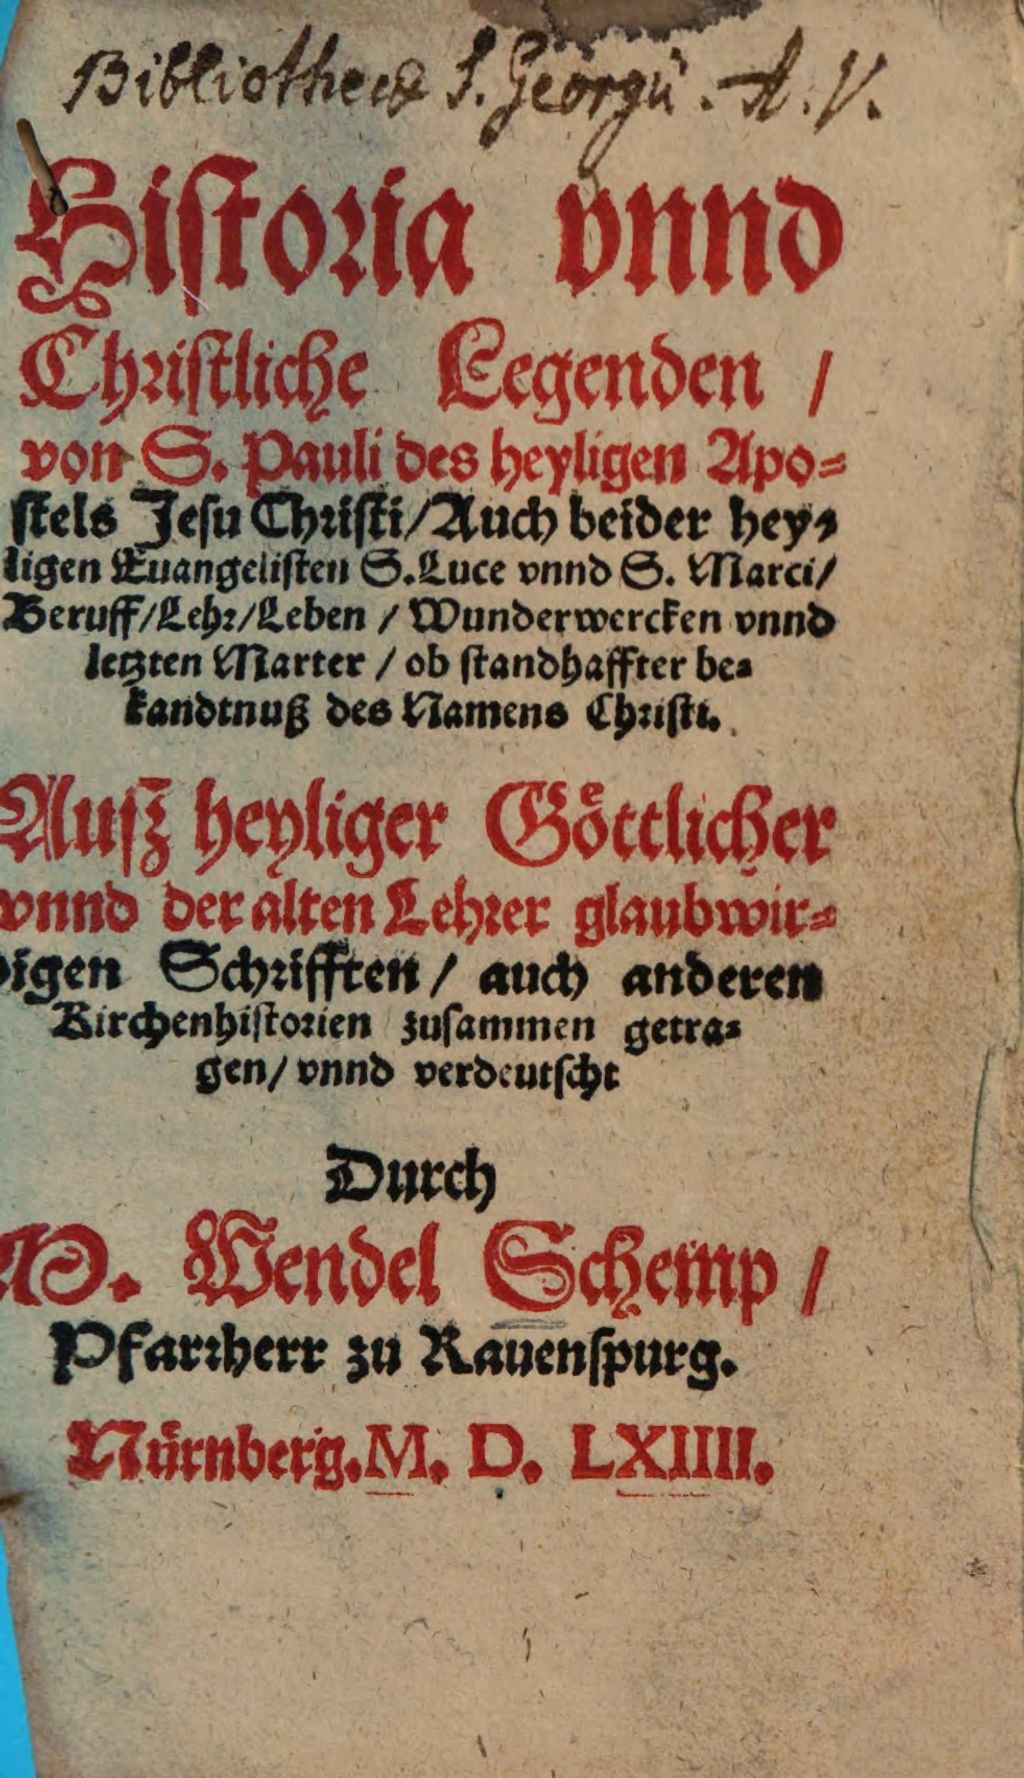 Bibliothecæ S. Georgii. A. V.
Historia vnnd
Christliche Legenden /
von S. Pauli des heyligen Apo=
stels Jesu Christi / Auch beider hey=
ligen Euangelisten S. Luce vnnd S. Marci /
Beruff / Lehr / Leben / Wunderwercken vnnd
letzten Marter / ob standhaffter be=
kandtnuß des Namens Christi.
Ausz heyliger Göttlicher
vnnd der alten Lehrer glaubwir=
digen Schrifften / auch anderen
Kirchenhistorien zusammen getra=
gen / vnnd verdeutscht
Durch
M. Wendel Schemp /
Pfarrherr zu Rauenspurg.
Nürnberg. M. D. LXIIII.